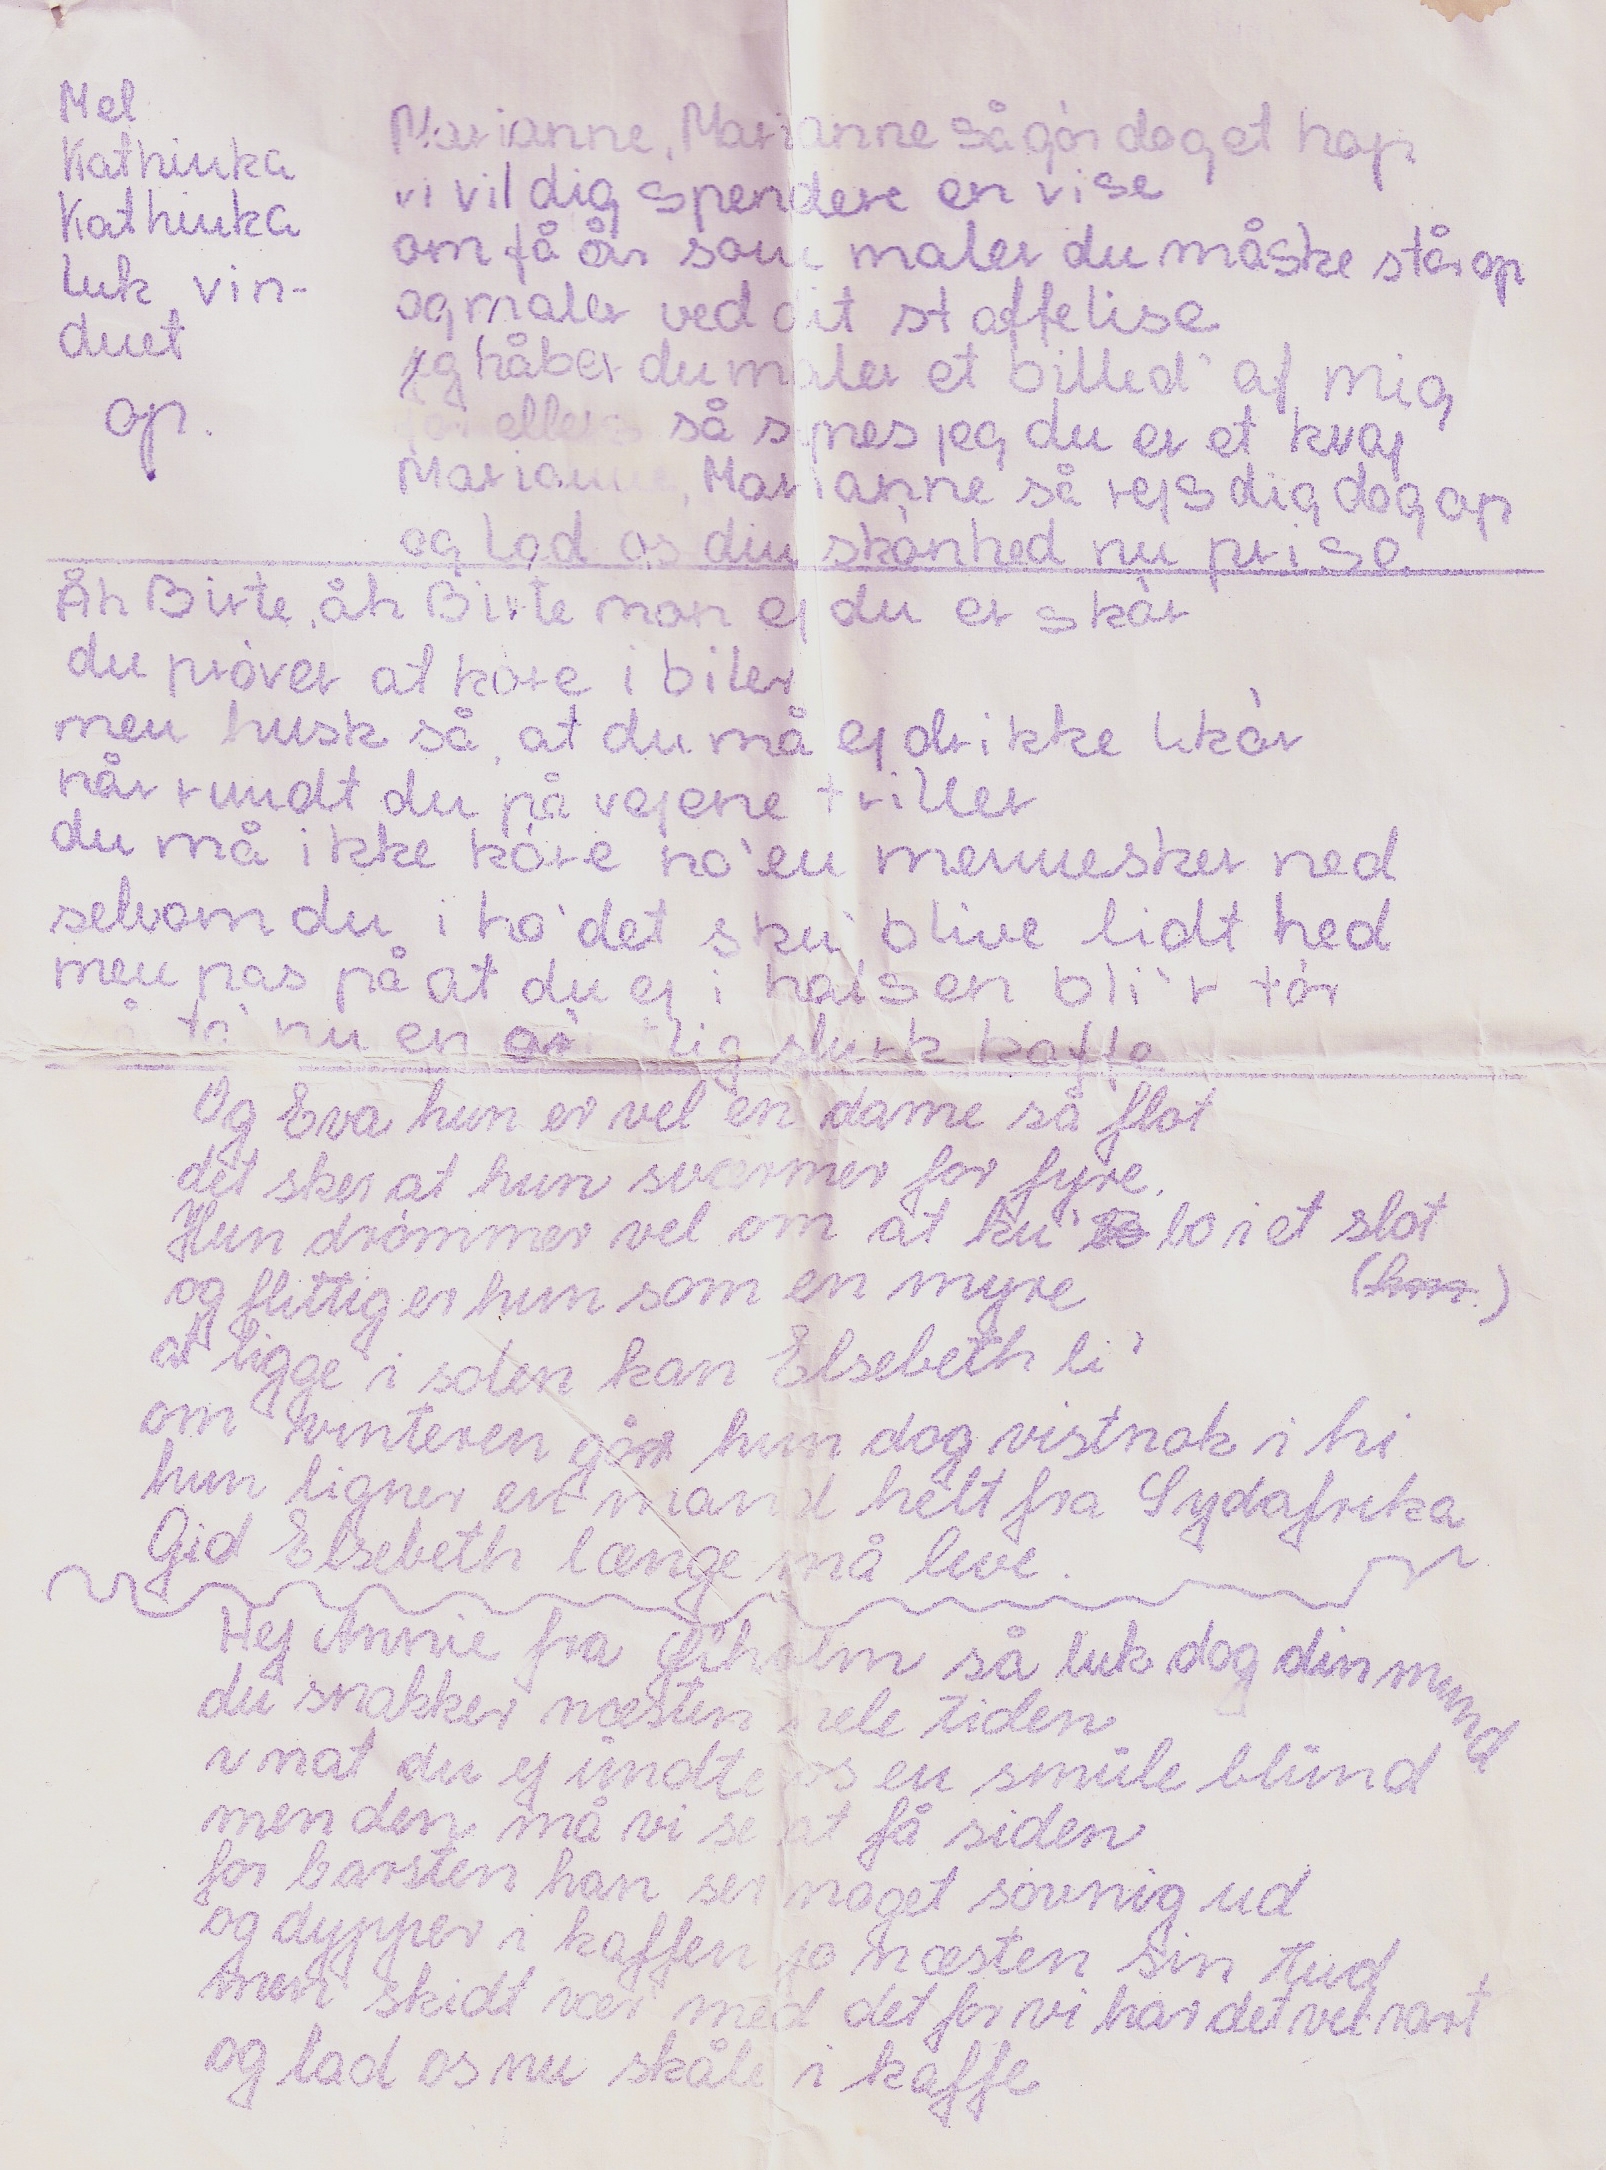 Mel
Kathinka
Kathinka
luk vin-
duet
op.
Marianne, Marianne så gør dog et hop
vi vil dig spendere en vise
om få år som maler du måske står op
og maler ved dit staffelise
jeg håber du maler et billed' af mig
for ellers så synes jeg du er et kvaj
Marianne, Marianne så rejs dig dog op
og lad os din skønhed nu prise
Åh Birte, åh Birte mon ej du er skør
du prøver at køre i biler
men husk så, at du må ej drikke likør
når rundt du på vejene triller
du må ikke køre no'en mennesker ned
selvom du i ho'det sku' blive lidt hed
men pas på at du ej i halsen bli'r tør
så ta' nu en slurk kaffe
Og Eva hun er vel en dame så flot
det sker at hun sværmer for fyre.
Hun drømmer vel om at ku' bo i et slot
og flittig er hun som en myre
at ligge i solen kan Elsebeth li'
om vinteren går hun dog vistnok i hi
hun ligner en mand helt fra Sydafrika
Gid Elsebeth længe må leve.
Hej Annie fra så luk dog din mund
du snakker næsten hele tiden
i nat du ej undte os en smule blund
men den må vi se at få siden
for karsten han ser noget søvnig ud
og dypper i kaffen jo næsten sin tud
men skidt vær med det for vi har det vel rart
og lad os nu skåle i kaffe